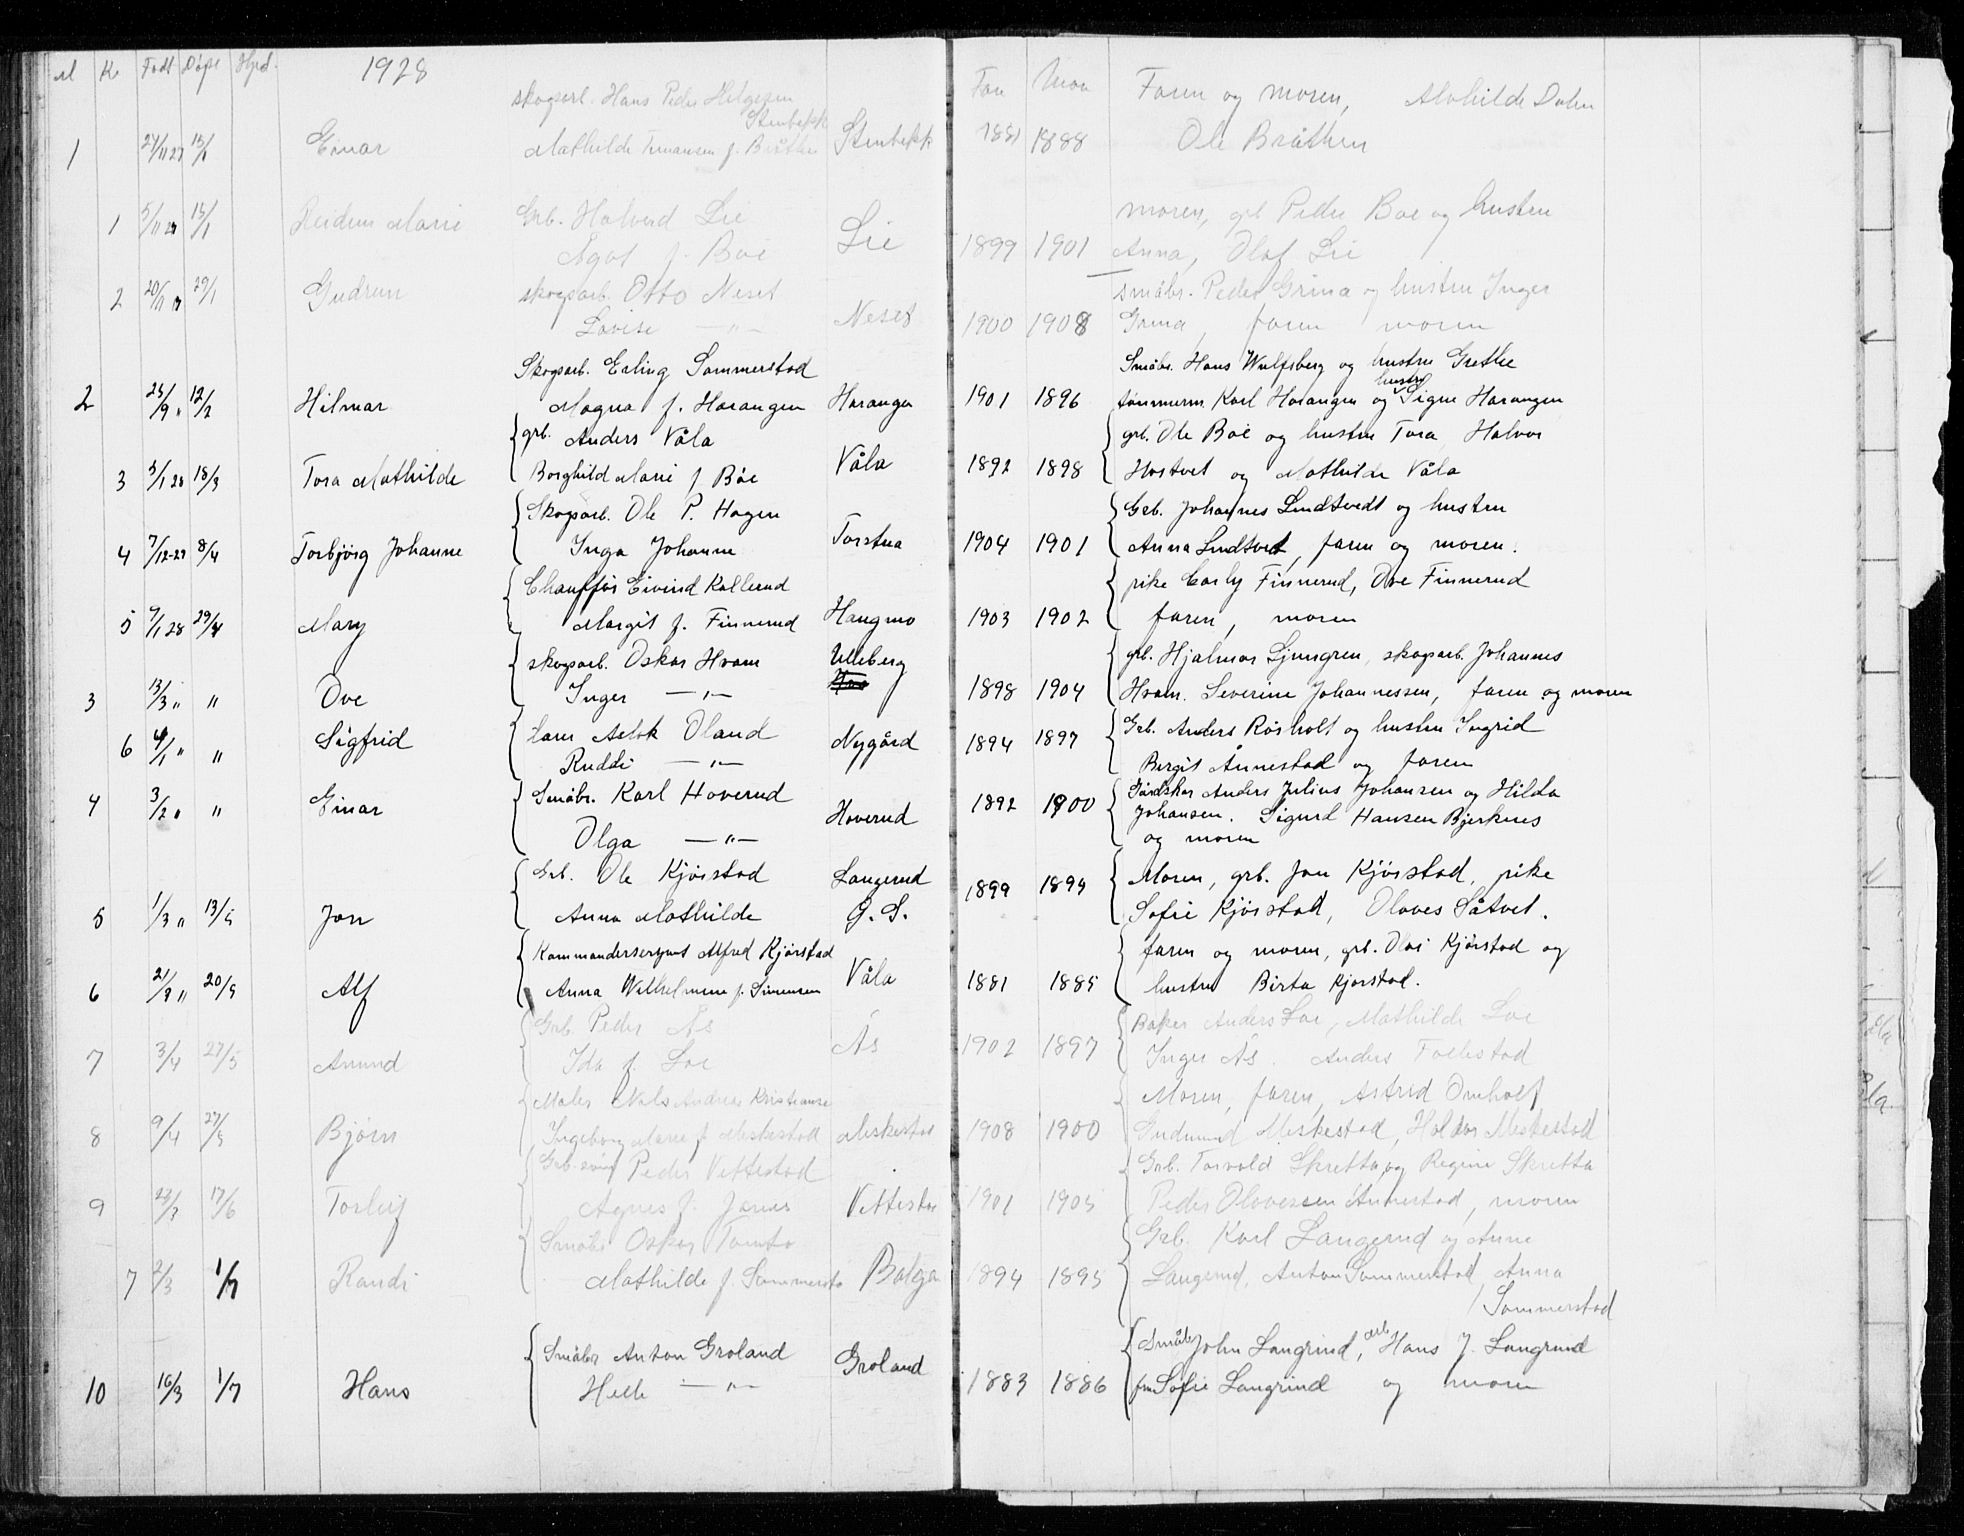 M K Født Døpt Hjd. 1928 Far Mor
skogsarb. Hans Peder Helgesen Faren og moren, Mathilde Dalen
Stenbekk
1 24/11 27 15/1 Einar Mathilde f. Bråthen Stenbekk 1881 1888 Ole Bråthen
1 5/11 27 15/1 Reidun Marie Grb. Halvord Lie Lie moren, grb Peder Boe og hustru
Ågot f. Boe 1899 1901 Anna, Olaf Lie
2 29/1 Gudrun skogsarb. Otto Neset Neset småbr. Peder Grina og hustru Inger
Lovise —"— 1900 1908 Grina, faren moren
Skogsarb. Erling Sommerstad Småbr. Hans Wulfsberg og hustru Grethe
hustru
2 25/9 " 12/2 Hilmar Magna f. Harangen Harangen 1901 1896 tømmerm. Karl Harangen og Signe Harangen
grb. Anders Våla grb. Ole Boe og hustru Tora, Halvor
3 5/1 28 18/3 Tora Mathilde Borghild Marie f Bøe Våla 1892 1898 Hostvet og Mathilde Våla
Skogsarb. Ole P. Hagen Grb. Johannes Lindtvedt og hustru
4 7/12-27 8/4 Torbjörg Johanne Inga Johanne Torstua 1904 1901 Anna Lindtvet, faren og moren.
Chauffør Eivind Kallerud pike Carly Finnerud, Ove Finnerud
5 9/1 28 29/4 Mary Margit f. Finnerud Haugmo 1903 1902 faren, moren
skogsarb. Oskar Hvam Ulleberg grb. Hjalmar Ljungren, skogsarb. Johannes
3 13/3 " " Ove Inger —"— 1898 1904 Hvam. Severine Johannessen, faren og moren
6 4/1 " " Sigfrid Lars Aslak Oland Nygård 1894 1897 Grb. Anders Rösholt og hustru Ingrid
Ruddi —"— Bergit Ånnestad og faren
4 3/2 " " Einar Småbr. Karl Hoverud 1892 1900 Gårdskar Anders Julius Johansen og Hilda
Hoverud Johansen. Sigurd Hansen Bjerknes
Olga —"— og moren
Grb. Ole Kjörstad Langerud 1899 1894 Moren, grb. Jon Kjörstad, pike
5 1/3 " 13/5 Jon Anna Mathilde G. S. Sofie Kjörstad, Olaves Såtvet.
Kommandersersjant Alfred Kjörstad faren og moren, grb. Olai Kjörstad og
6 21/3 " 20/5 Alf Anna Wilhelmine f. Simensen Våla 1881 1885 hustru Birta Kjörstad.
Grb. Peder Ås Ås Baker Anders Loe, Mathilde Loe
7 3/4 27/5 Amund Ida f. Loe 1902 1897 Inger Ås. Anders Follestad
Maler Nils Andreas Kristiansen Moren, faren, Astrid Omholt
8 9/4 27/5 Bjørn Ingeborg Marie f. Meskestad Meskestad 1908 1900 Gudmund Meskestad, Haldor Meskestad
Grb. sønn Peder Vettestad Grb. Torvald Skretta, og Regine Skretta
9 17/6 Torleif Agnes f. Vettestad 1901 1905 Peder Olavessen Ånnestad, moren
Småbr Oskar Tomta Grb. Karl Langerud og Anne
7 2/3 1/7 Randi Mathilde f. Sommerstad 1894 1895 Langerud, Anton Sommerstad, Anna
Sommerstad
Småbr Anton Groland Groland Småbr John Langrind, arb. Hans J. Langrind
10 16/3 1/7 Hans Helle —"— 1883 1886 fru Sofie Langrind og moren